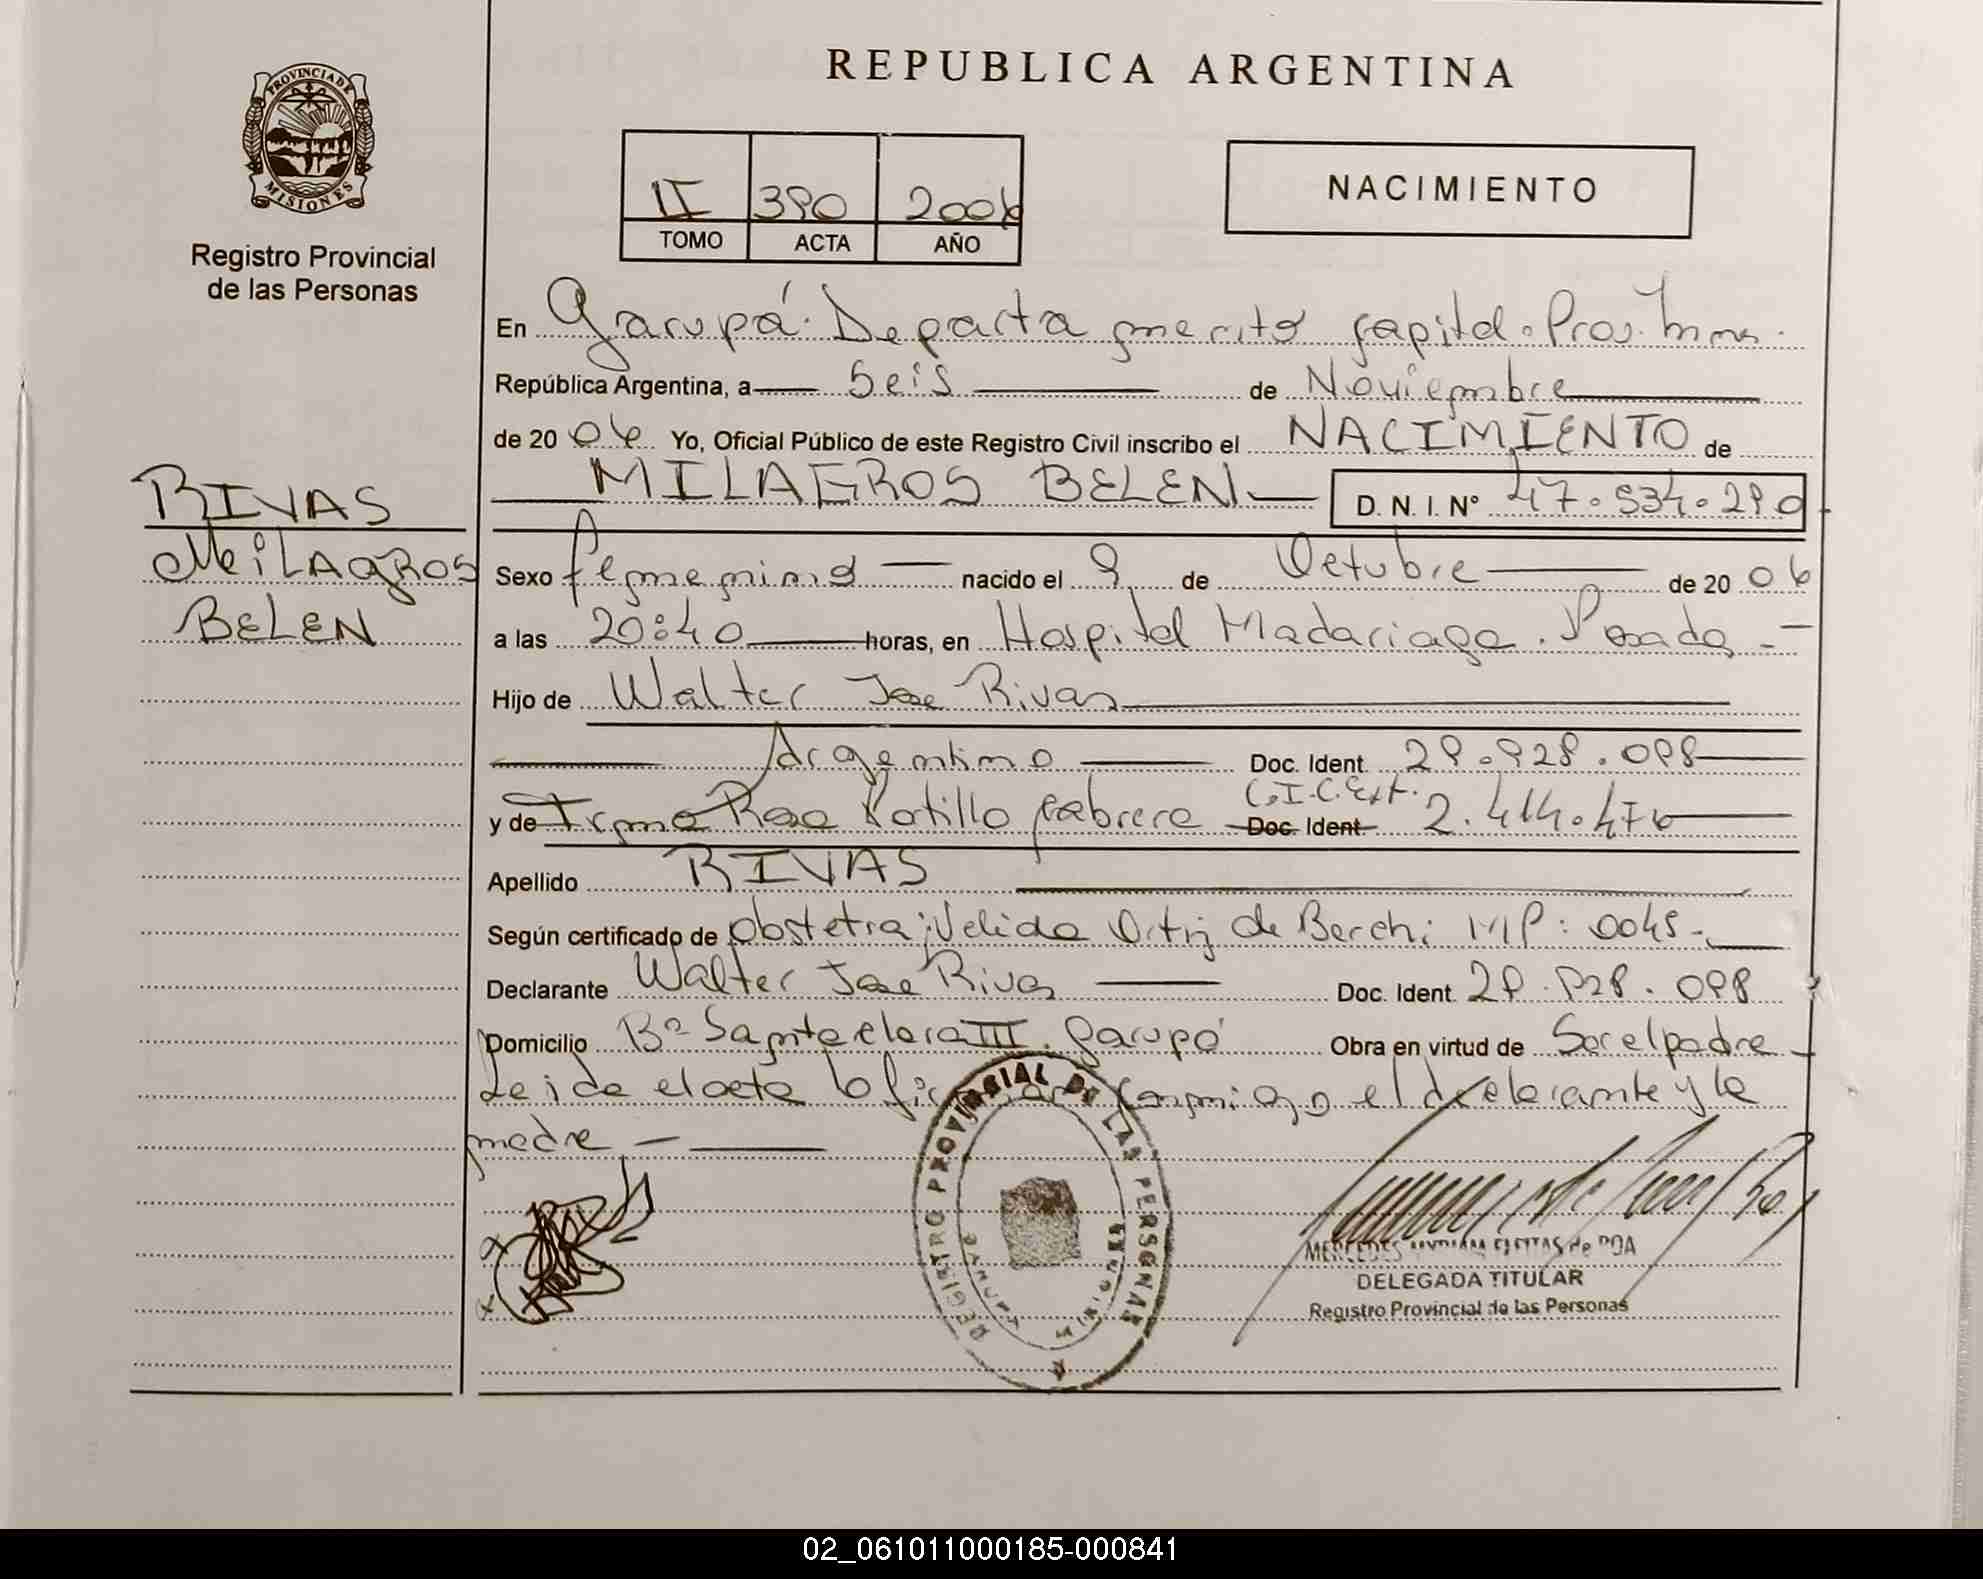 REPUBLICA ARGENTINA
PROVINCIA DE
MISIONES
Registro Provincial
de las Personas
II 390 2006
TOMO ACTA AÑO
NACIMIENTO
En Garupá. Departamento Capital. Prov. Mnes.
República Argentina, a Seis de Noviembre
de 20 06 Yo, Oficial Público de este Registro Civil inscribo el NACIMIENTO de
MILAGROS BELEN D. N. I. Nº 47.534.290
RIVAS
MiLAGROS
BELEN
Sexo femenino nacido el 9 de Octubre de 20 06
a las 20:40 horas, en Hospital Madariaga. Posadas
Hijo de Walter Jose Rivas
Argentino Doc. Ident. 29.928.098
C.I.C.Ext.
y de Irma Rosa Portillo Cabrera Doc. Ident 2.414.476
Apellido RIVAS
Según certificado de obstetra; Velida Ortiz de Berchi MP: 0045
Declarante Walter Jose Rivas Doc. Ident. 29.928.098
Domicilio Bº Santa clara III. Garupá Obra en virtud de Ser el padre
Leida el acta la firman conmigo el declarante y la
madre
REGISTRO PROVINCIAL DE LAS PERSONAS
GARUPA MISIONES
MERCEDES MYRIAM FLEITAS de POA
DELEGADA TITULAR
Registro Provincial de las Personas
02_061011000185-000841